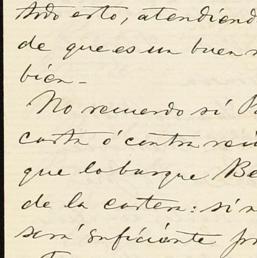 todo esto, atendiend
de que es un buen
bien-
No recuerdo si
carta ó contra reci
que lo busque Be
de la cartera: si n
será suficiente pr